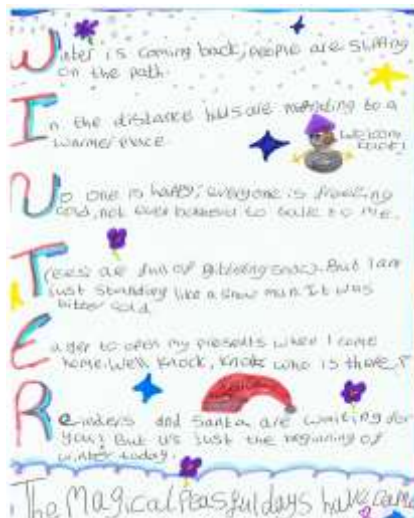 Winter is coming back, people are slipping
on the path.
In the distance birds are migrating to a
warmer place.
Welcome
back!
No one is happy; everyone is freezing
cold, not even bothered to talk to me.
Trees are full of glittering snow. But I am
just standing like a snow man. It was
bitter cold.
Eager to open my presents when I come
home. Well, knock, knock who is there?
Reinders and Santa are waiting for
you! But it's just the beginning of
winter today.
The Magical Peasful days have came